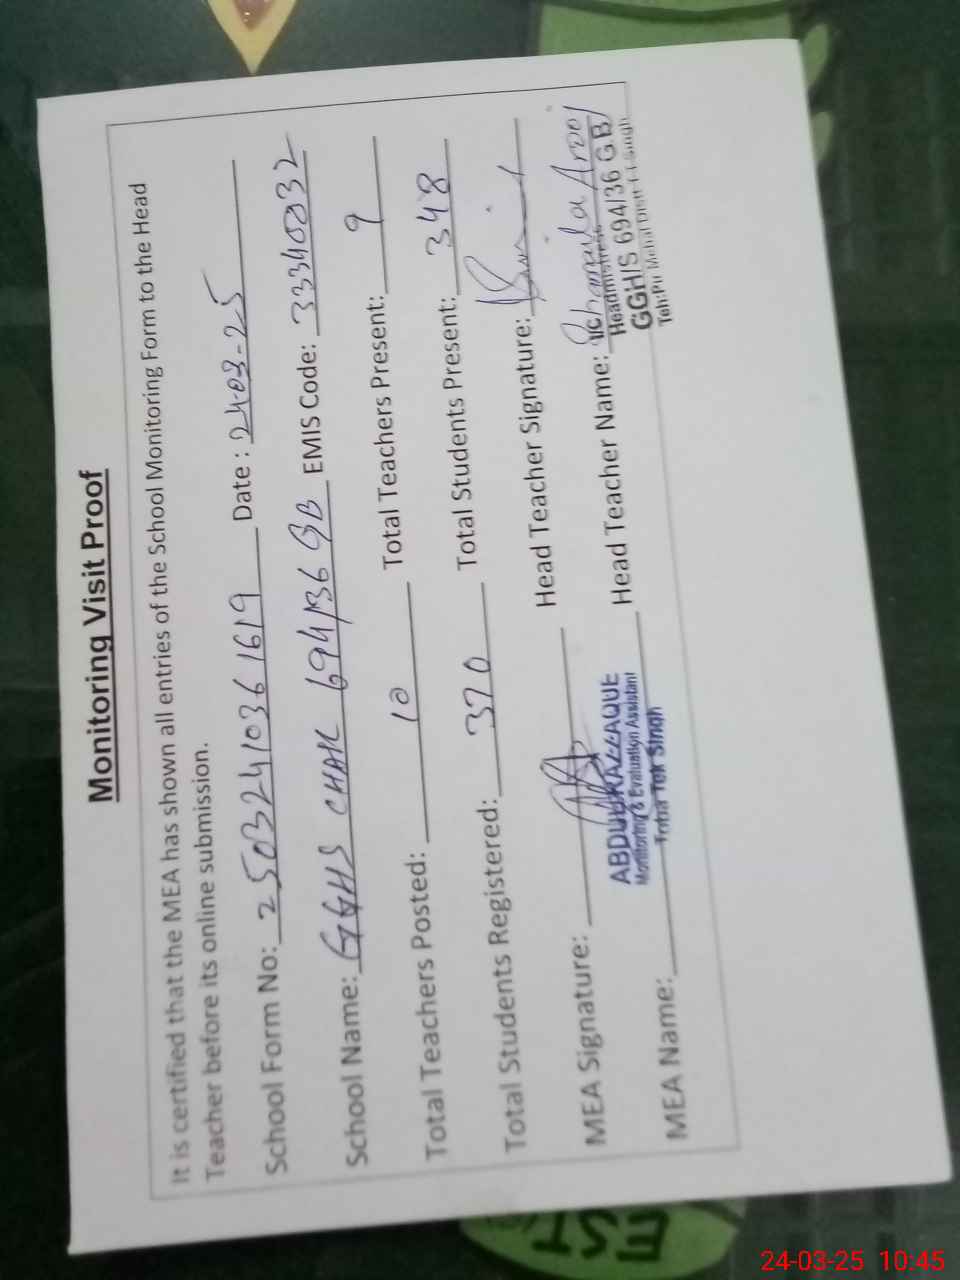 Monitoring Visit Proof
It is certified that the MEA has shown all entries of the School Monitoring Form to the Head
Teacher before its online submission.
School Form No: 25032410361619 Date : 24-03-25
School Name: GGHS CHAK 694/36 GB EMIS Code: 33340032
Total Teachers Posted: 10 Total Teachers Present: 9
Total Students Registered: 370 Total Students Present: 348
MEA Signature: Head Teacher Signature:
ABDUL RAZZAQUE
Monitoring & Evaluation Assistant
Toba Tek Singh
MEA Name: Head Teacher Name:
Headmistress
GGHS 694/36 GB
EST
24-03-25 10:45